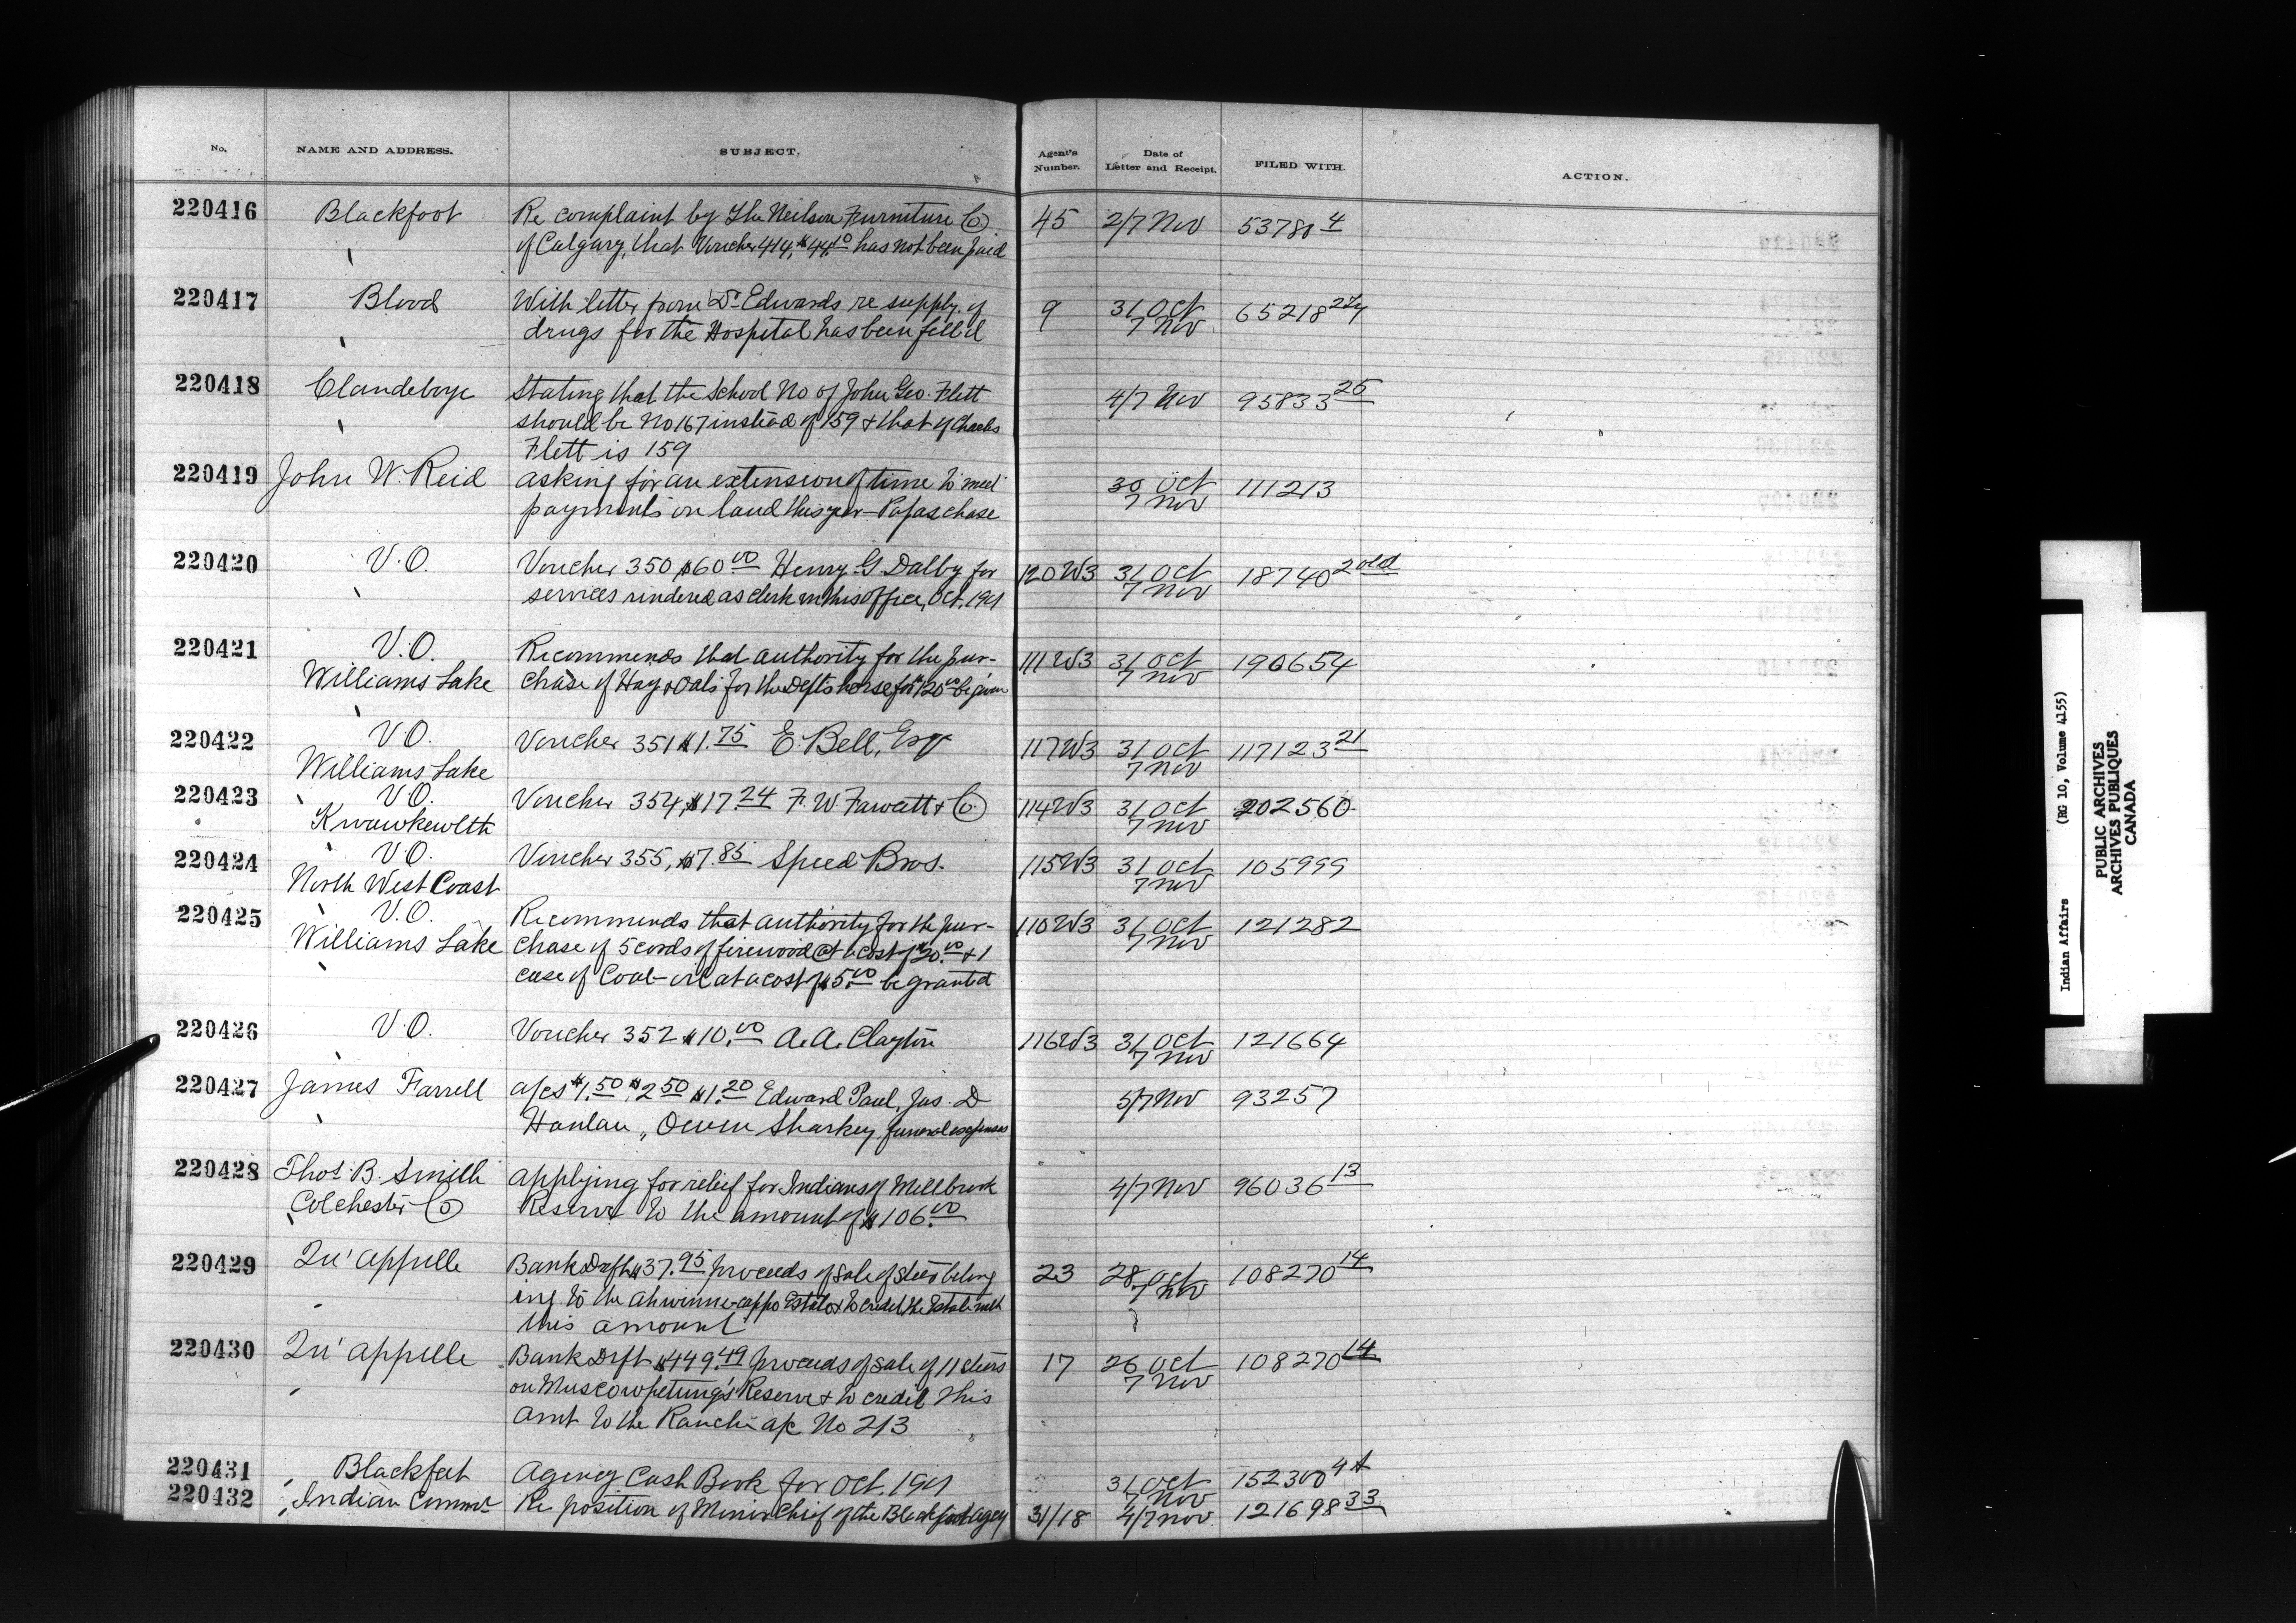 No. NAME AND ADDRESS. SUBJECT. Agent's Number. Date of Letter and Receipt. FILED WITH. ACTION.
220416 Blackfoot Re complaint by The Neilson Furniture Co 45 2/7 Nov 53780 4
of Calgary, that Voucher 414, $44.10 has not been paid
220417 Blood With letter from Dr Edwards re supply of 9 31 Oct 65218
drugs for the Hospital has been fill'd 7 Nov
220418 Clandeboye Stating that the School No of John Geo. Flett 4/7 Nov 95833 25
should be No 167 instead of 159 & that of Charles
Flett is 159
220419 John W. Reid asking for an extension of time to meet 30 Oct 111213
payments on land this year - Papaschase 7 Nov
220420 V.O. Voucher 350 $60 00 Henry G Dalby for 120 W3 31 Oct 18740 2 old
services rendered as clerk in this office, Oct. 1901 7 Nov
220421 V.O. Recommends that authority for the pur- 111 W3 31 Oct 190654
Williams Lake chase of Hay & Oats for the Depts horse for $120 00 be given 7 Nov
220422 V O. Voucher 351 $1.75 E. Bell, Esq 117 W3 31 Oct 117123 21
Williams Lake 7 Nov
220423 V.O. Voucher 354, $17 24 F. W Fawcett & Co 114 W3 31 Oct 202560
Kwawkewlth 7 Nov
220424 V.O. Voucher 355, $7.85 Speed Bros. 115 W3 31 Oct 105999
North West Coast 7 Nov
220425 V.O. Recommends that authority for the pur- 110 W3 31 Oct 121282
Williams Lake chase of 5 cords of firewood @ a cost of $20.00 & 1 7 Nov
case of Coal-oil at a cost of $5.00 be granted
220426 V.O. Voucher 352 $10.00 A. A. Clayton 116 W3 31 Oct 121664
7 Nov
220427 James Farrell a/cs $1.50, $2 50 $1.20 Edward Paul, Jas. D 5/7 Nov 93257
Hanlan, Owen Sharkey, funeral expenses
220428 Thos. B. Smith applying for relief for Indians of Millbrook 4/7 Nov 96036 13
Colchester Co Reserve to the amount of $106.00
220429 Qu'appelle Bank Draft $37.95 proceeds of sale of steer belong 23 28 Oct 108270 14
ing to the Estate & to credit the Estate with 7 Nov
this amount
220430 Qu'appelle Bank Drft $449.49 proceeds of sale of 11 steers 17 26 Oct 108270 14
on Muscowpetung's Reserve & to credit this 7 Nov
amt to the Ranche a/c No 213
220431 Blackfeet Agency Cash Book for Oct. 1901 31 Oct 152300
7 Nov
220432 Indian Commr Re position of Minor Chief of the Blackfoot Agcy 31/18 4/7 Nov. 121698 33
Indian Affairs (RG 10, Volume 4155)
PUBLIC ARCHIVES
ARCHIVES PUBLIQUES
CANADA